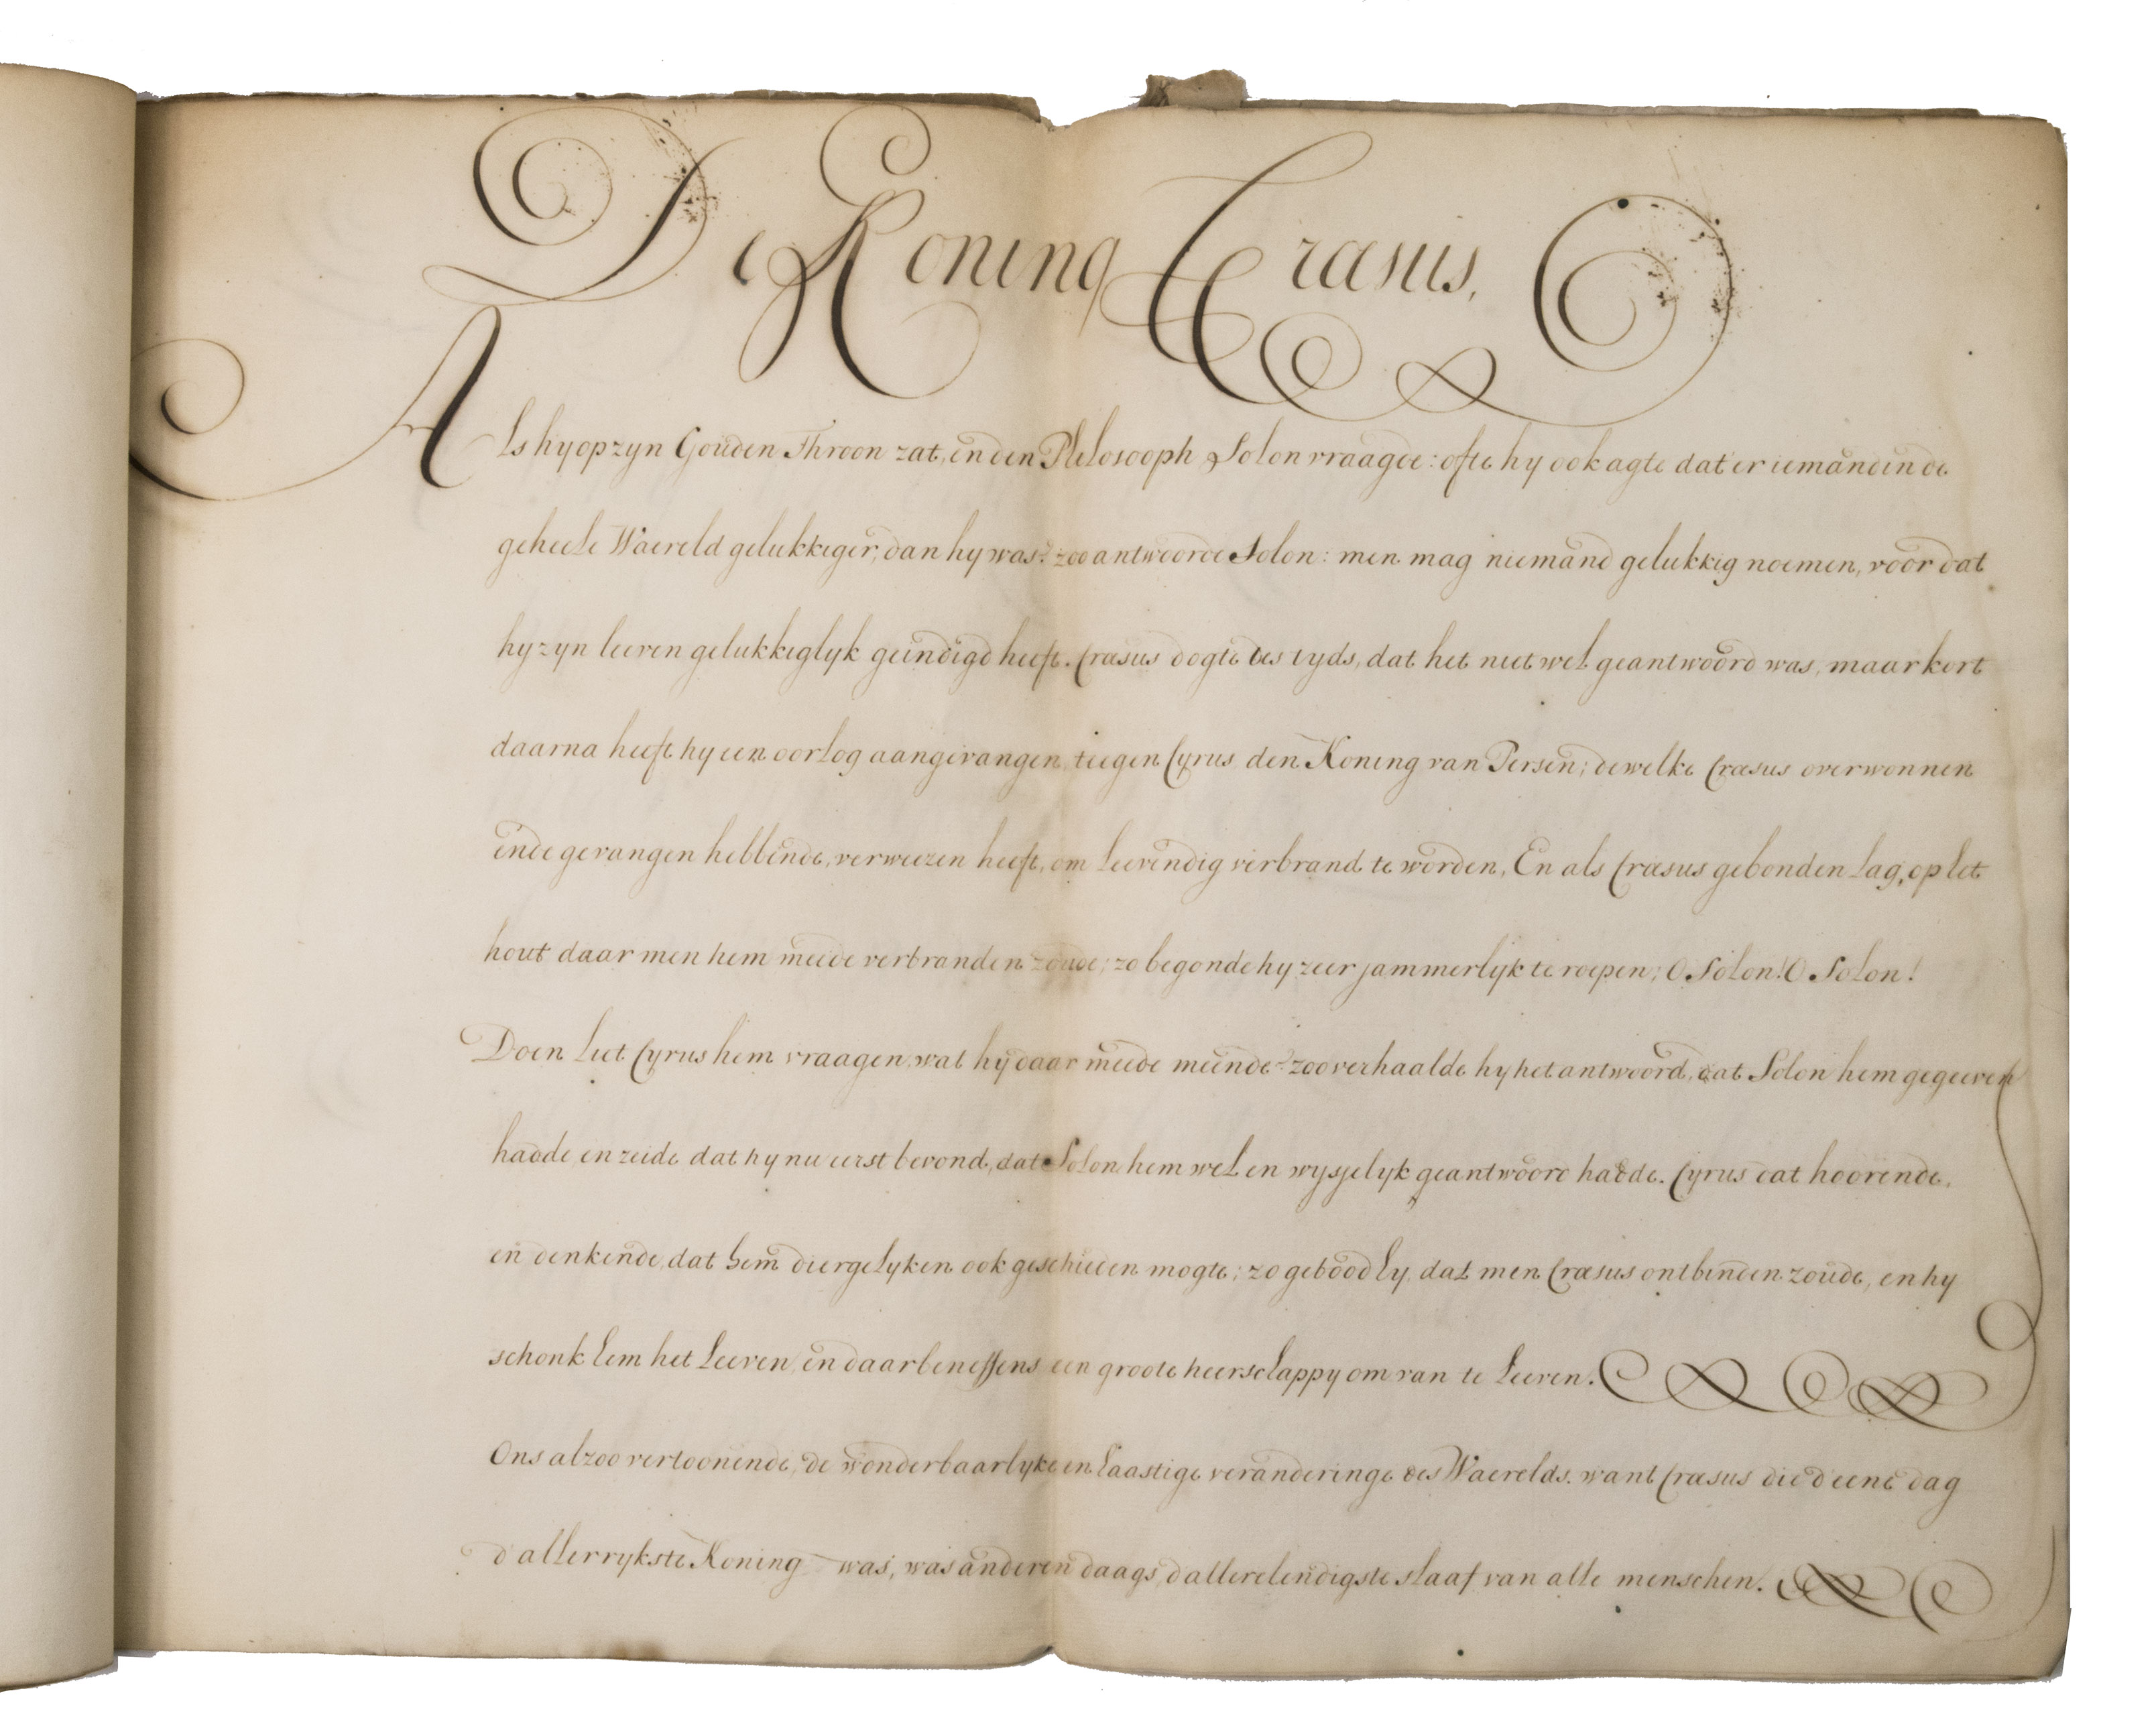 De Koning Cræsus,
Als hy op zyn Gouden Throon zat, en den Philosooph Solon vraagde: ofte hy ook agte dat er iemand in de
geheele Waereld gelukkiger, dan hy was? zoo antwoorde Solon: men mag niemand gelukkig noemen, voor dat
hy zyn leeven gelukkiglyk geindigd heeft. Cræsus dogte des tyds, dat het niet wel geantwoord was, maar kort
daarna heeft hy een oorlog aangevangen, teegen Cyrus den Koning van Persen; dewelke Cræsus overwonnen
ende gevangen hebbende, verweezen heeft, om leevendig verbrand te worden, En als Cræsus gebonden lag, op het
hout daar men hem meede verbranden zoude; zo begonde hy zeer jammerlyk te roepen; O Solon! O Solon!
Doen liet Cyrus hem vraagen, wat hy daar meede meende? zoo verhaalde hy het antwoord, dat Solon hem gegeeven
hadde en zeide dat hy nu eerst bevond, dat Solon hem wel en wysselyk geantwoord hadde. Cyrus dat hoorende,
en denkende, dat hem diergelyken ook geschieden mogte; zo gebood hy, dat men Cræsus ontbinden zoude, en hy
schonk hem het leeven, en daarbeneffens een groote heerschappy om van te leeven.
Ons alzoo vertoonende, de wonderbaarlyke en haastige veranderinge des Waerelds. want Cræsus die d'eene dag
d'allerrykste Koning was, was anderen daags, d'allerelendigste slaaf van alle menschen.